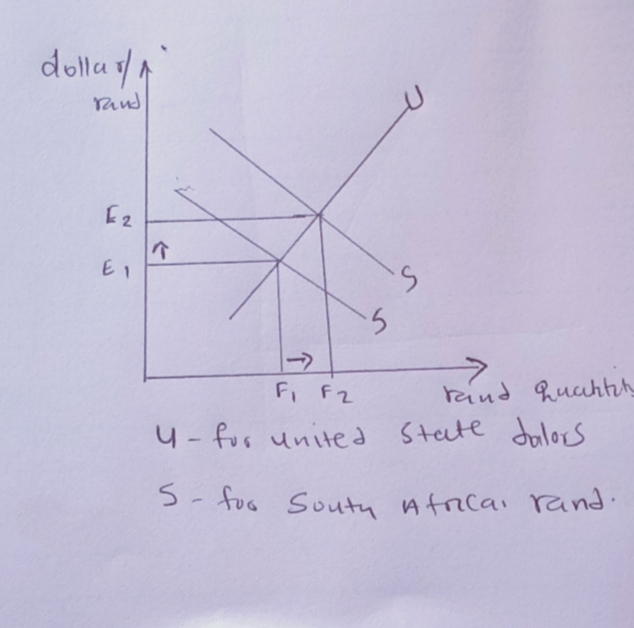 dollar/
rand
U
E2
E1
S
S
F1 F2
rand Quantity
U - for united State dalors
S - for South Africa. rand.